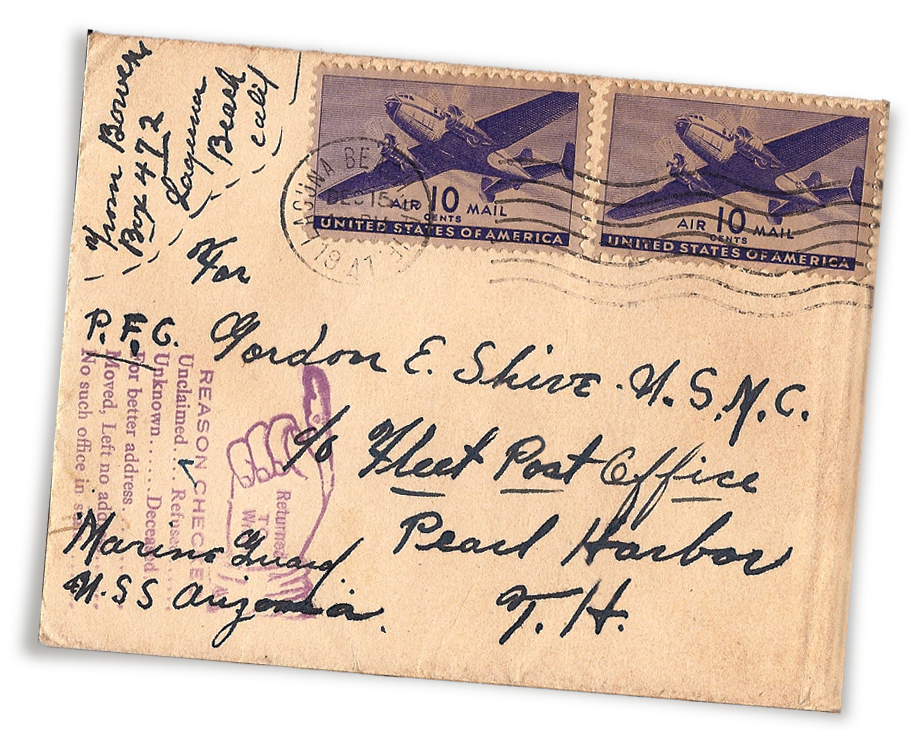 From Bowen
Box 472
Laguna
Beach
Calif
AIR 10 MAIL
CENTS
UNITED STATES OF AMERICA
AIR 10 MAIL
CENTS
UNITED STATES OF AMERICA
LAGUNA BEACH
DEC 15
19 41
For
P.F.C. Gordon E. Shive. U.S.M.C.
c/o Fleet Post Office
Pearl Harbor
T.H.
Marine Guard
U.S.S Arizonia.
Returned
TO
REASON CHECKED
Unclaimed Refused
Unknown Deceased
For better address
Moved, Left no
No such office in